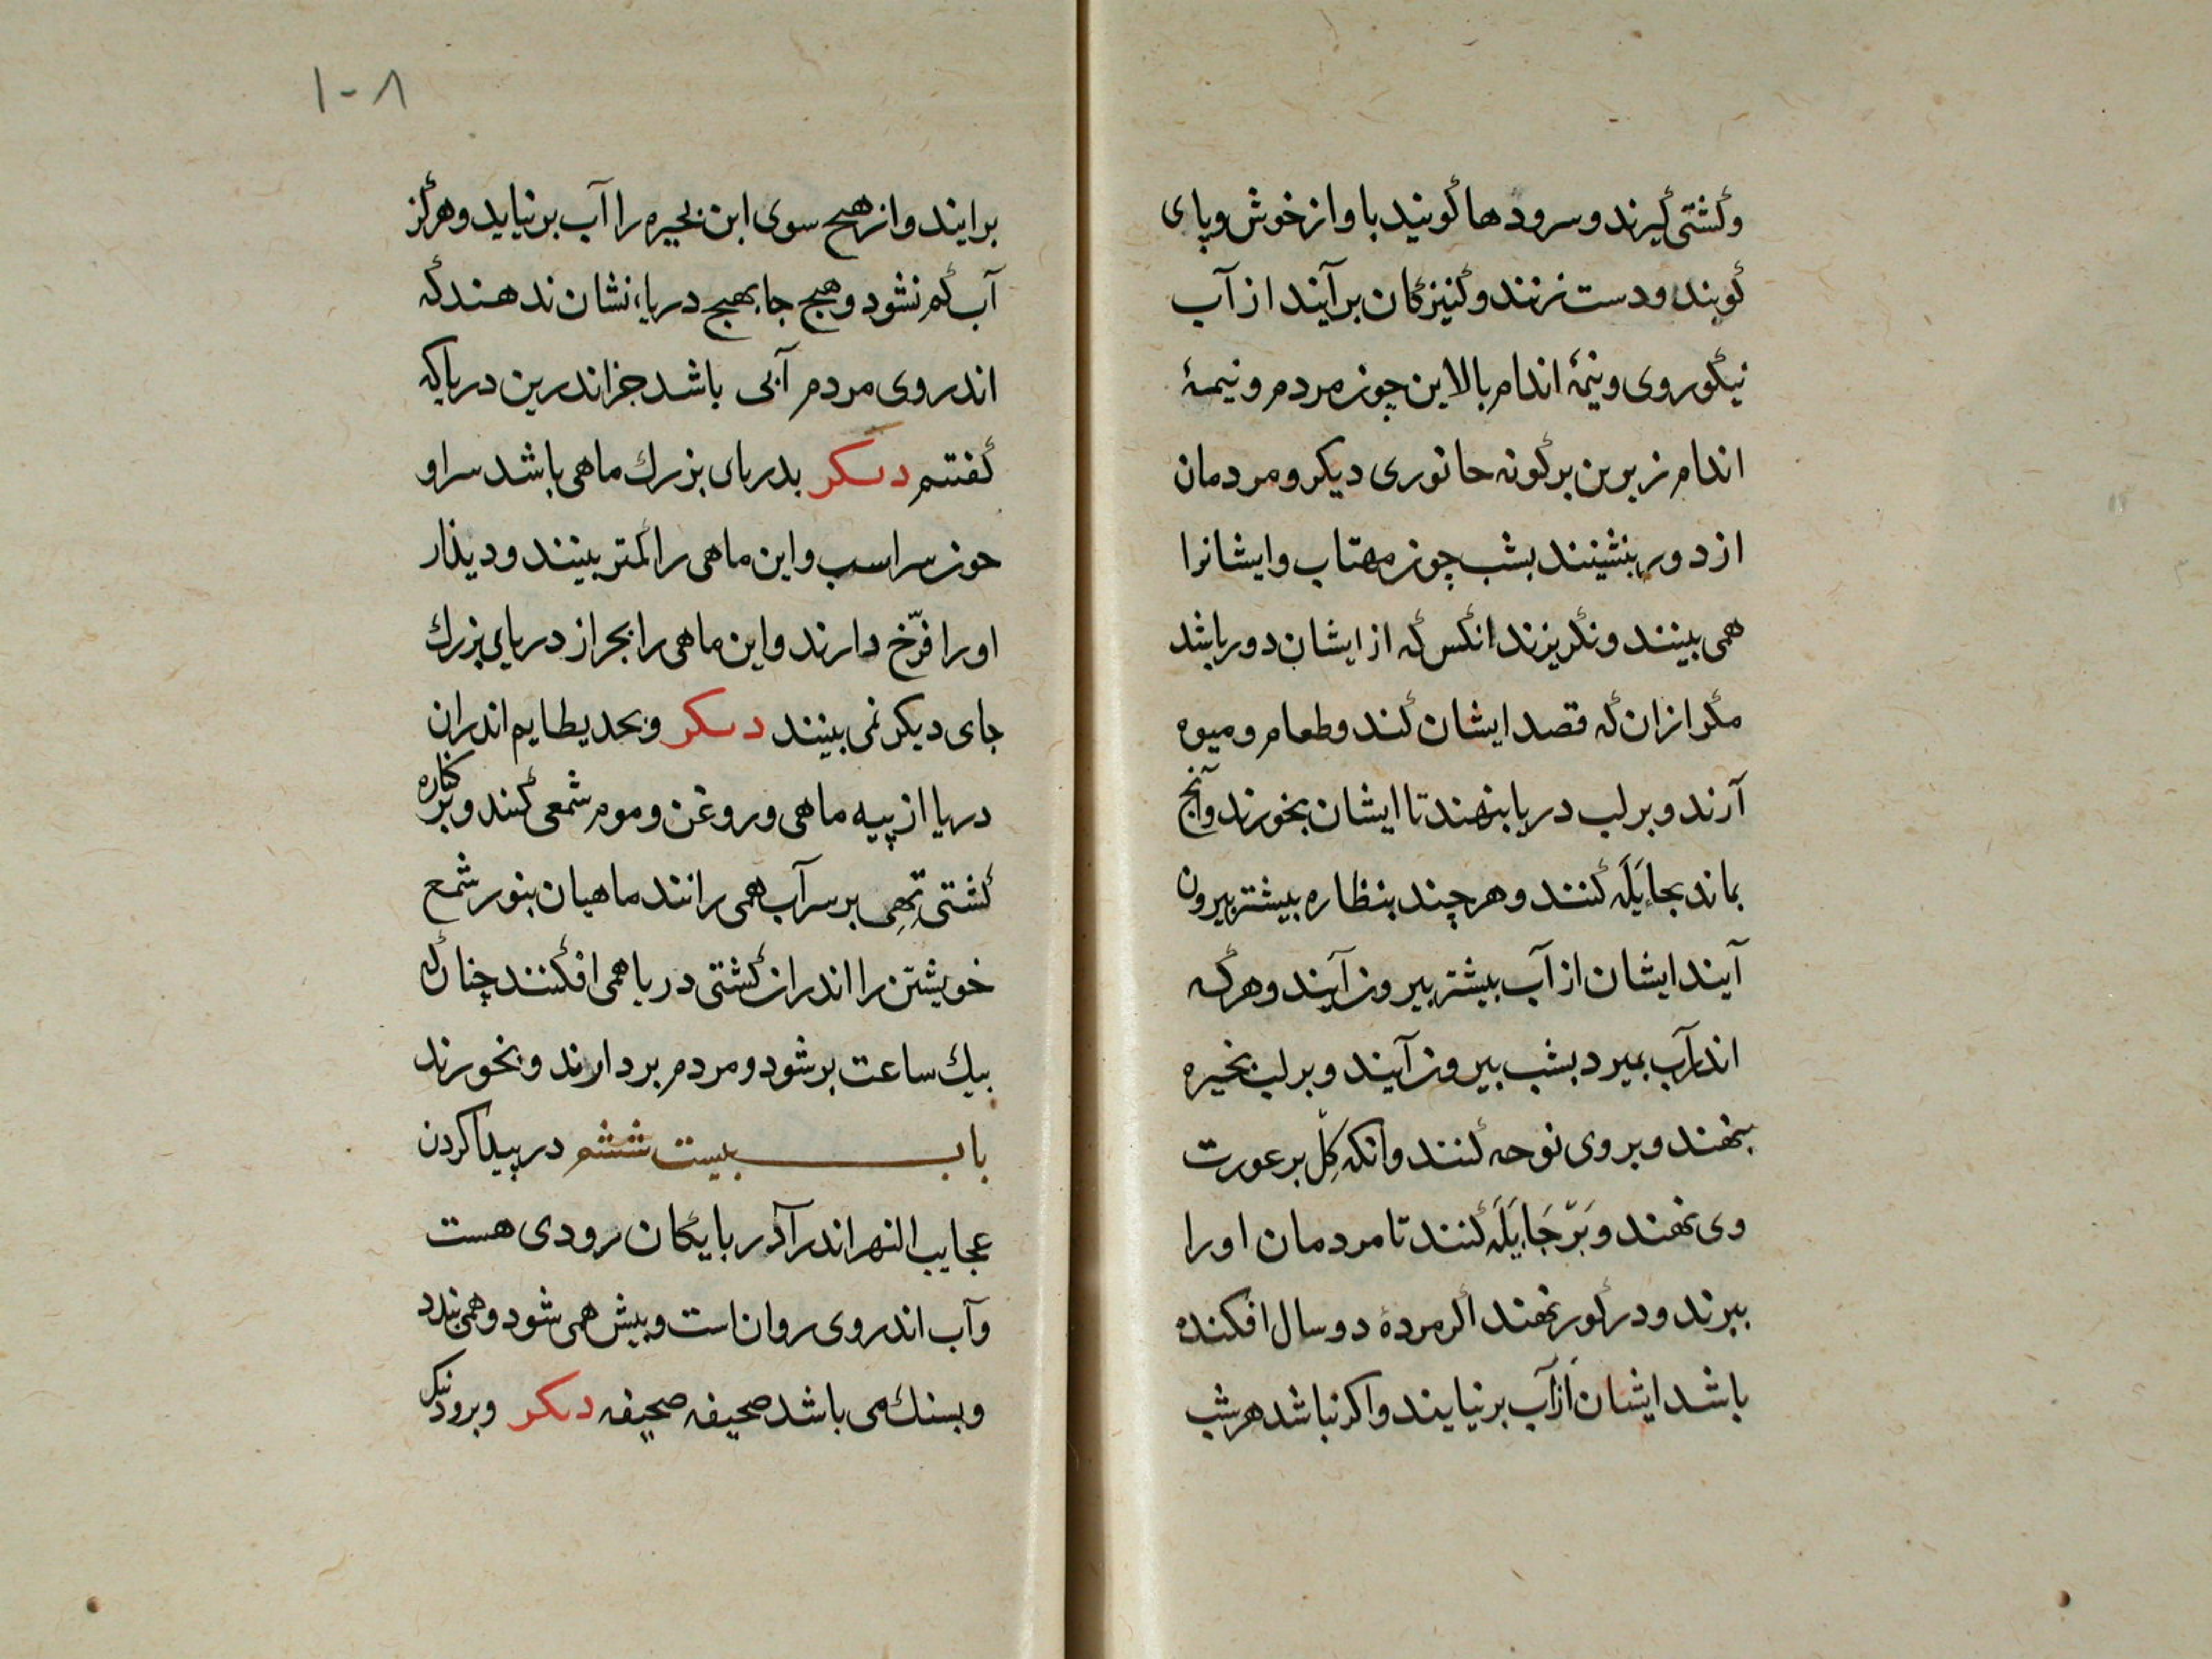 وکشتی کیرند و سرودها کویند باواز خوش و پای
کوبند و دست زنند و کنیزکان برآیند از آب
نیکو روی و نیمهٔ اندام بالاین چون مردم و نیمهٔ
اندام زیرین برکونه حانوری دیکر و مردمان
از دور بنشینند بشب چون مهتاب و ایشانرا
همی بینند و نکریزند انکس که از ایشان دور باشد
مکر ازان که قصد ایشان کند و طعام و میوه
آرند و بر لب دریا بنهند تا ایشان بخورند و آنج
بماند بجا یله کنند و هرچند بنظاره بیشتر بیرون
آیند ایشان از آب بیشتر بیرون آیند و هرکه
اندر آب بمیرد بشب بیرون آیند و بر لب بحیره
بنهند و بر وی نوحه کنند وانکه کل بر عورت
وی نهند و بر جا یله کنند تا مردمان او را
ببرند و در کور نهند اکر مردهٔ دو سال افکنده
باشد ایشان از آب برنیایند و اکر نباشد هر شب
۱۰۸
برایند و از هیچ سوی این بحیره را آب برنیاید و هرکز
آب کم نشود و هیچ جا بهیچ دریا نشان ندهند که
اندر وی مردم آبی باشد جز اندرین دریا که
کفتیم دیکر بدریای بزرك ماهی باشد سر او
چون سر اسب و این ماهی را کمتر بینند و دیذار
او را فرّخ دارند و این ماهی را بجز از دریای بزرك
جای دیکر نمی بینند دیکر و بحد یطایم اندران
دریا از پیه ماهی و روغن و موم شمعی کنند و بر کناره
کشتی تهی بر سر آب همی رانند ماهیان بنور شمع
خویشتن را اندران کشتی دریا همی افکنند چنانکه
بیك ساعت پر شود و مردم بردارند و بخورند
باب بیست ششم در پیدا کردن
عجایب النهر اندر آذربایکان رودی هست
و آب اندر وی روان است و بیش همی شود و همی بندد
و بسنك می باشد صحیفه صحیفه دیکر و برود نیل